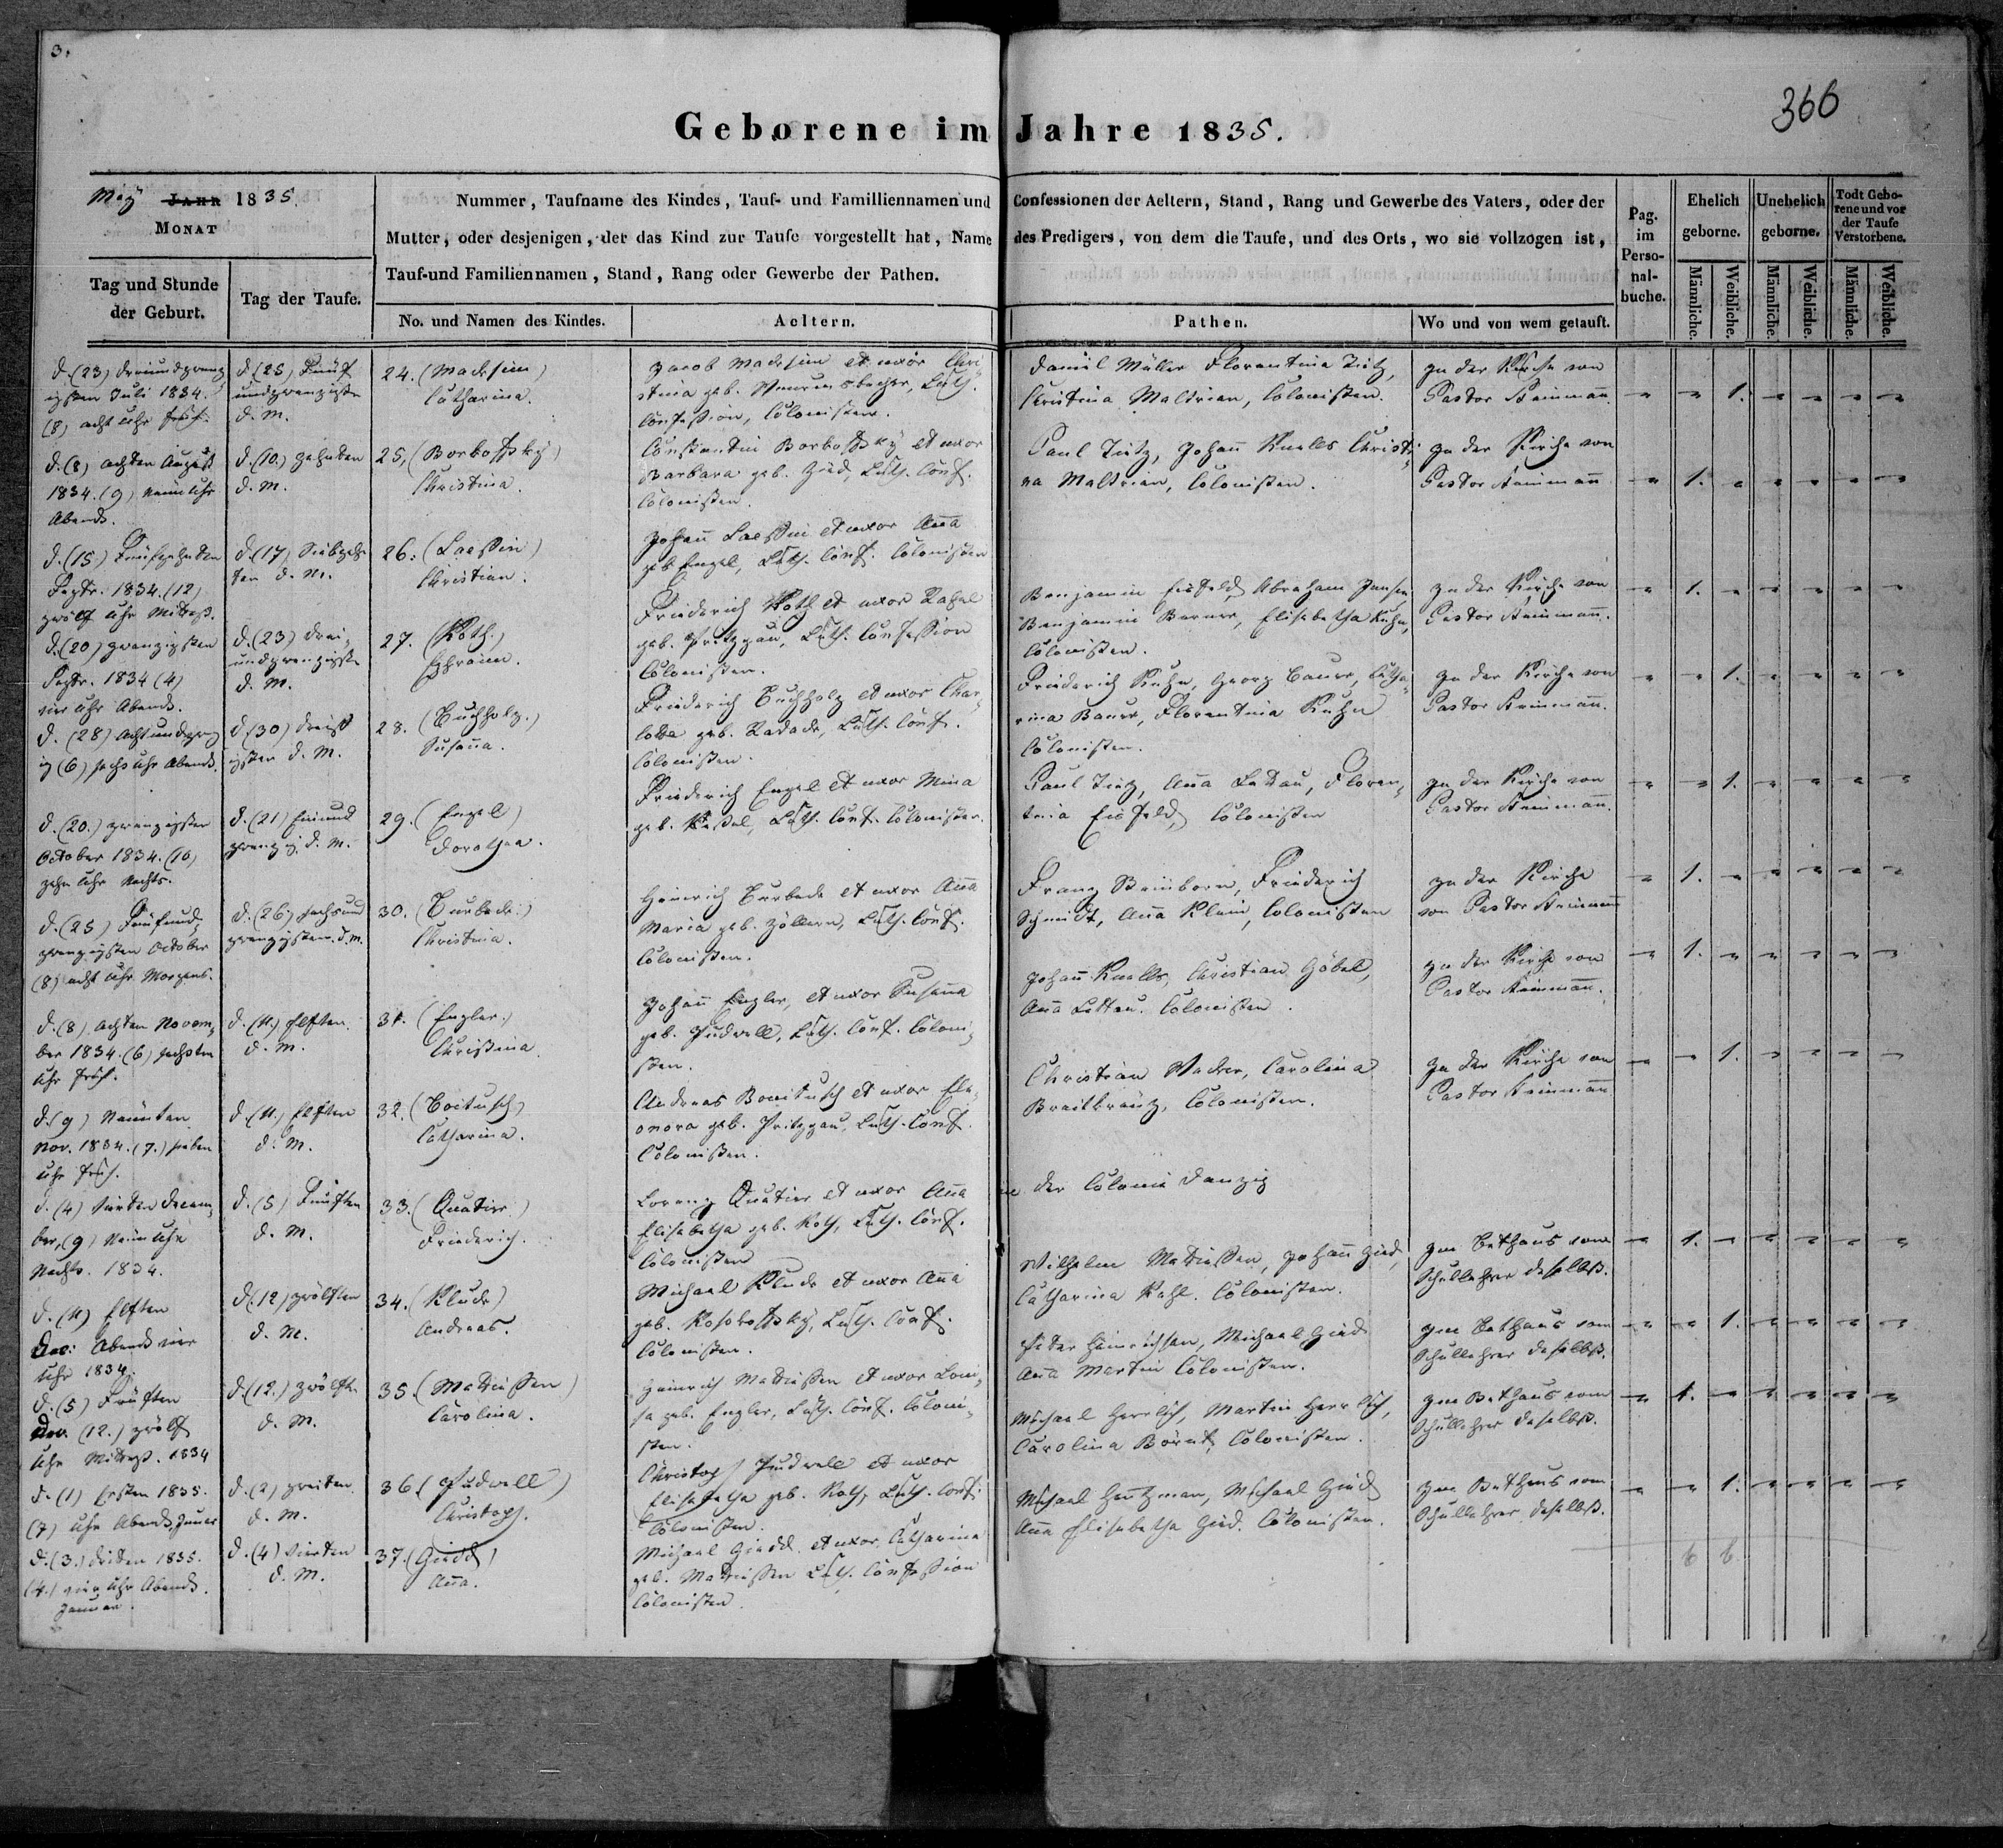 3.
366
Geborene im Jahre 1835.
May JAHR 1835.
MONAT
Tag und Stunde
der Geburt.
Tag der Taufe.
Nummer, Taufname des Kindes, Tauf- und Familliennamen und
Mutter, oder desjenigen, der das Kind zur Taufe vorgestellt hat, Name
Tauf-und Familiennamen, Stand, Rang oder Gewerbe der Pathen.
No. und Namen des Kindes.
Aeltern.
Confessionen der Aeltern, Stand, Rang und Gewerbe des Vaters, oder der
des Predigers, von dem die Taufe, und des Orts, wo sie vollzogen ist,
Pathen.
Wo und von wem getauft.
Pag.
im
Perso-
nal-
buche.
Ehelich
geborne.
Unehelich
geborne.
Todt Gebo-
rene und vor
der Taufe
Verstorbene.
Männliche.
Weibliche.
Männliche.
Weibliche.
Männliche.
Weibliche.
d. (23) dreiundzwanz
igsten Juli 1834.
(8) acht Uhr früh.
d. (25) Fünf
undzwanzigsten
d. M.
24. (Madesim)
Catharina.
Jacob Madesim et uxor Chri
stina geb.
Confession, Colonisten.
Daniel Müller Florentina Tütz,
Christina Maltrian, Colonisten.
In der Kirche von
Pastor
1.
d. (8) achten August
1834. (9) neun Uhr
Abends.
d. (10.) zehnten
d. M.
25, (Borboffsky)
Christina.
Constantin Borboffsky et uxor
Barbara geb. Gied, Luth. Conf.
Colonisten.
Paul Tütz, Johañ Knells Christi
na Maltrian, Colonisten.
In der Kirche von
Pastor
1.
d. (15) Fünfzehnten
Septr. 1834. (12)
zwölf Uhr Mittags.
d. (17) Siebzehn
ten d. M.
26. (Laessin)
Christian.
Johañ Laessin et uxor Aña
geb Engel, Luth. Conf. Colonisten
Benjamin Eisfeld Abraham Jansen
Benjamin Bauer, Elisabetha Kuhn,
Colonisten.
In der Kirche von
Pastor
1.
d. (20) zwanzigsten
Septr. 1834 (4)
vier Uhr Abends.
d. (23) drei-
undzwanzigste
d. M.
27. (Roth.)
Ephraim.
Friederich Roth et uxor Rahel
geb. Pritzgau, Luth. Confession
Colonisten.
Friederich Kuhn, Georg Bauer, Catha-
rina Bauer, Florentina Kuhn
Colonisten.
In der Kirche von
Pastor
1.
d. (28) achtundzwanz
ig (6) sechs Uhr Abends.
d (30) dreiß
igsten d. M.
28. (Buchholz.)
Susaña.
Friederich Buchholz et uxor Char-
lotta geb. Radack, Luth. Conf.
Colonisten.
Paul Tütz, Aña Lettau, Floren-
tina Eisfeld, Colonisten
In der Kirche von
Pastor
1.
d. (20.) zwanzigsten
October 1834. (10)
zehn Uhr Nachts.
d. (21) Einund
zwanzig. d. M.
29. (Engel)
Dorothea.
Friederich Engel et uxor Mina
geb. Luth. Conf. Colonisten.
Franz Steinborn, Friederich
Schmidt, Aña Klein, Colonisten
In der Kirche
von Pastor
1.
d. (25) Fünfund-
zwanzigsten October
(8) acht Uhr Morgens.
d. (26) sechsund
zwanzigsten. d. M.
30. (Burbade.)
Christina.
Heinrich Burbade et uxor Aña
Maria geb. Zöllern, Luth. Conf.
Colonisten.
Johañ Knells, Christian Göbel,
Aña Lettau. Colonisten.
In der Kirche von
Pastor
1.
d. (8) achten Novem-
ber 1834. (6) sechsten
Uhr früh.
d. (11.) elften
d. M.
31. (Engler.)
Christina.
Johañ Engler, et uxor Susaña
geb. Judvell, Luth. Conf. Coloni-
sten.
Christian Wacker, Carolina
Breitkreutz, Colonisten.
In der Kirche von
Pastor
1.
d. (9) Neunten
Nov. 1834. (7.) sieben
Uhr früh.
d. (11.) Elften
d. M.
32. (Boitusch)
Catharina.
Andreas Bonitusch et uxor Ele-
onora geb. Pritzgau, Luth. Conf.
Colonisten.
in der Colonie Danzig
d. (4) Vierten Decem-
ber, (9) Neun Uhr
Nachts. 1834.
d. (5) Fünften
d. M.
33. (Quatier.)
Friederich.
Lorenz Quatier et uxor Aña
Elisabetha geb. Roth, Luth. Conf.
Colonisten
Wilhelm Mathiessen, Johañ Gied,
Catharina Kahl. Colonisten.
Im Bethaus vom
Schullehrer daselbst.
1.
d. (11) Elften
Dec: Abends vier
Uhr 1834.
d. (12) zwölften
d. M.
34. (Klude)
Andreas.
Michael Klude et uxor Aña
geb. Kosoboffsky, Luth. Conf.
Colonisten.
Peter Heinrichsen, Michael Gied
Aña Martin Colonisten.
Im Bethaus vom
Schullehrer daselbst.
1.
d. (5) Fünften
Dec. (12.) zwölf
Uhr Mittags. 1834
d. (12.) zwölfte
d. M.
35. (Mathiessen)
Carolina.
Heinrich Mathiessen et uxor Loui-
sa geb. Engler, Luth. Conf. Coloni-
sten.
Michael Herrlich, Martin Herrlich,
Carolina Börnt, Colonisten.
Im Bethaus vom
Schullehrer daselbst.
1.
d. (1) Ersten 1835.
(7) Uhr Abends, Januar
d. (2) zweiten
d. M.
36. (Judvell)
Christoph.
Christoph Judvell et uxor
Elisabetha geb. Roth, Luth. Conf.
Colonisten.
Michael Hentzman, Michael Gied
Aña Elisabetha Gied. Colonisten.
Im Bethaus vom
Schullehrer daselbst.
1.
d. (3.) dritten 1835.
(4.) vier Uhr Abends.
Januar.
d. (4) vierten
d. M.
37. (Giedd)
Aña.
Michael Giedd et uxor Catharina
geb. Mathiessen Luth. Confession
Colonisten.
6 6